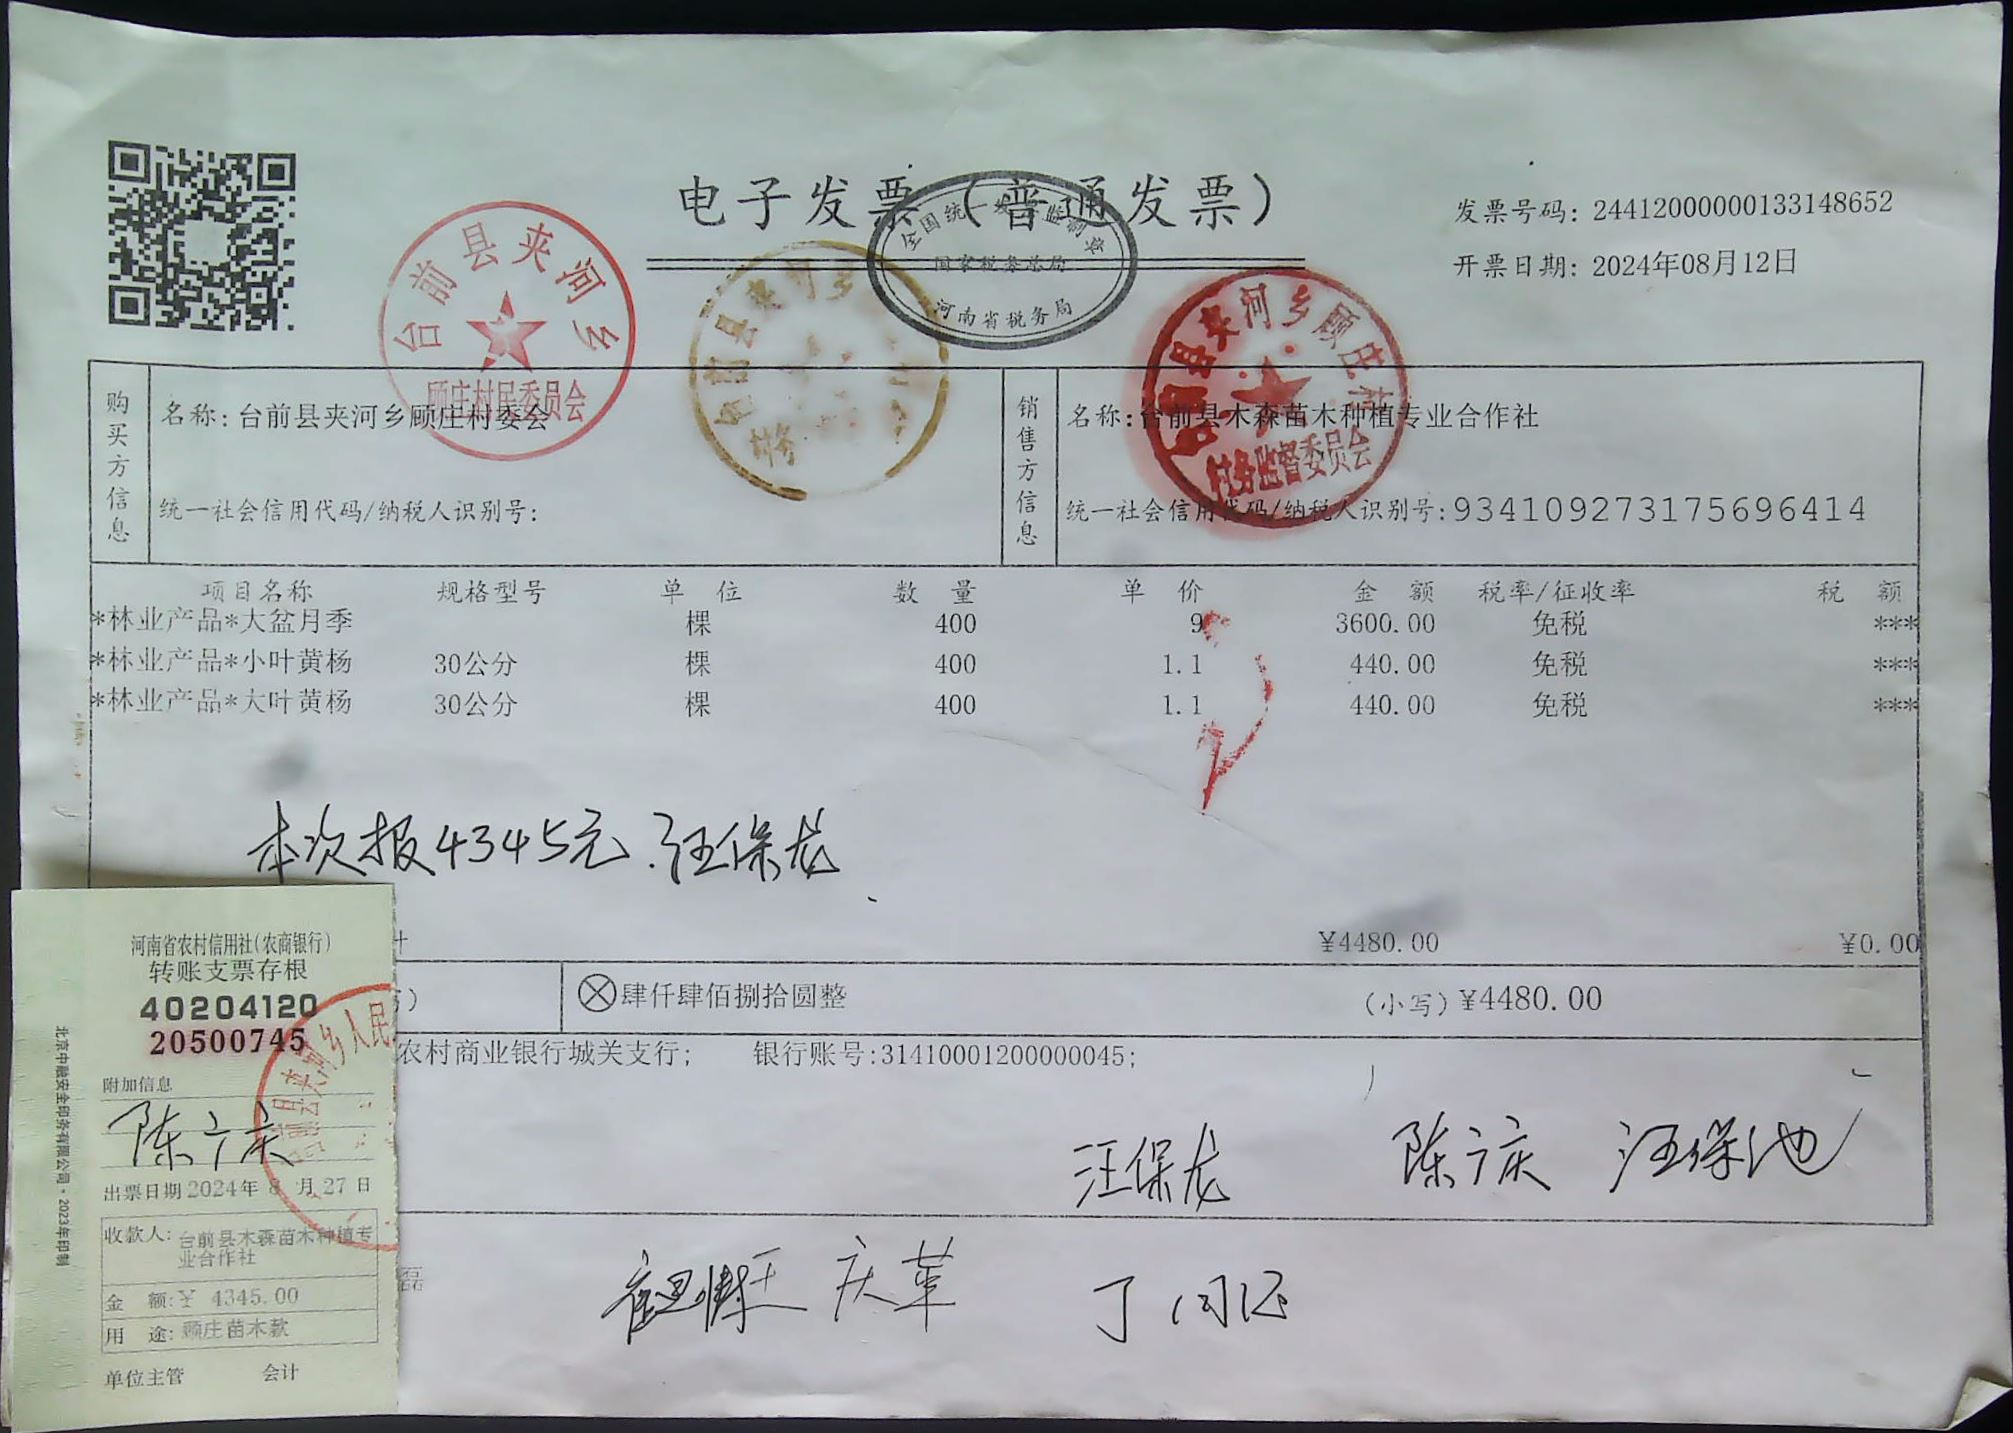 电子发票（普通发票）
全国统一发票监制章
国家税务总局
河南省税务局
发票号码：24412000000133148652
开票日期：2024年08月12日
台前县夹河乡
顾庄村民委员会
台前县夹河乡
台前县夹河乡顾庄村
村务监督委员会
购买方信息
名称：台前县夹河乡顾庄村委会
统一社会信用代码/纳税人识别号：
销售方信息
名称：台前县木森苗木种植专业合作社
统一社会信用代码/纳税人识别号：934109273175696414
项目名称 规格型号 单位 数量 单价 金额 税率/征收率 税额
*林业产品*大盆月季 棵 400 9 3600.00 免税 ***
*林业产品*小叶黄杨 30公分 棵 400 1.1 440.00 免税 ***
*林业产品*大叶黄杨 30公分 棵 400 1.1 440.00 免税 ***
本次报4345元.汪保龙
计 ¥4480.00 ¥0.00
肆仟肆佰捌拾圆整 （小写）¥4480.00
农村商业银行城关支行； 银行账号：31410001200000045；
汪保龙 陈广庆 汪保池
庆革
磊
河南省农村信用社（农商银行）
转账支票存根
40204120
20500745
附加信息
陈广庆
出票日期 2024年 8 月 27 日
收款人：台前县木森苗木种植专
业合作社
金 额：¥ 4345.00
用 途：顾庄苗木款
单位主管 会计
北京中融安全印务有限公司·2023年印制
县夹河乡人民